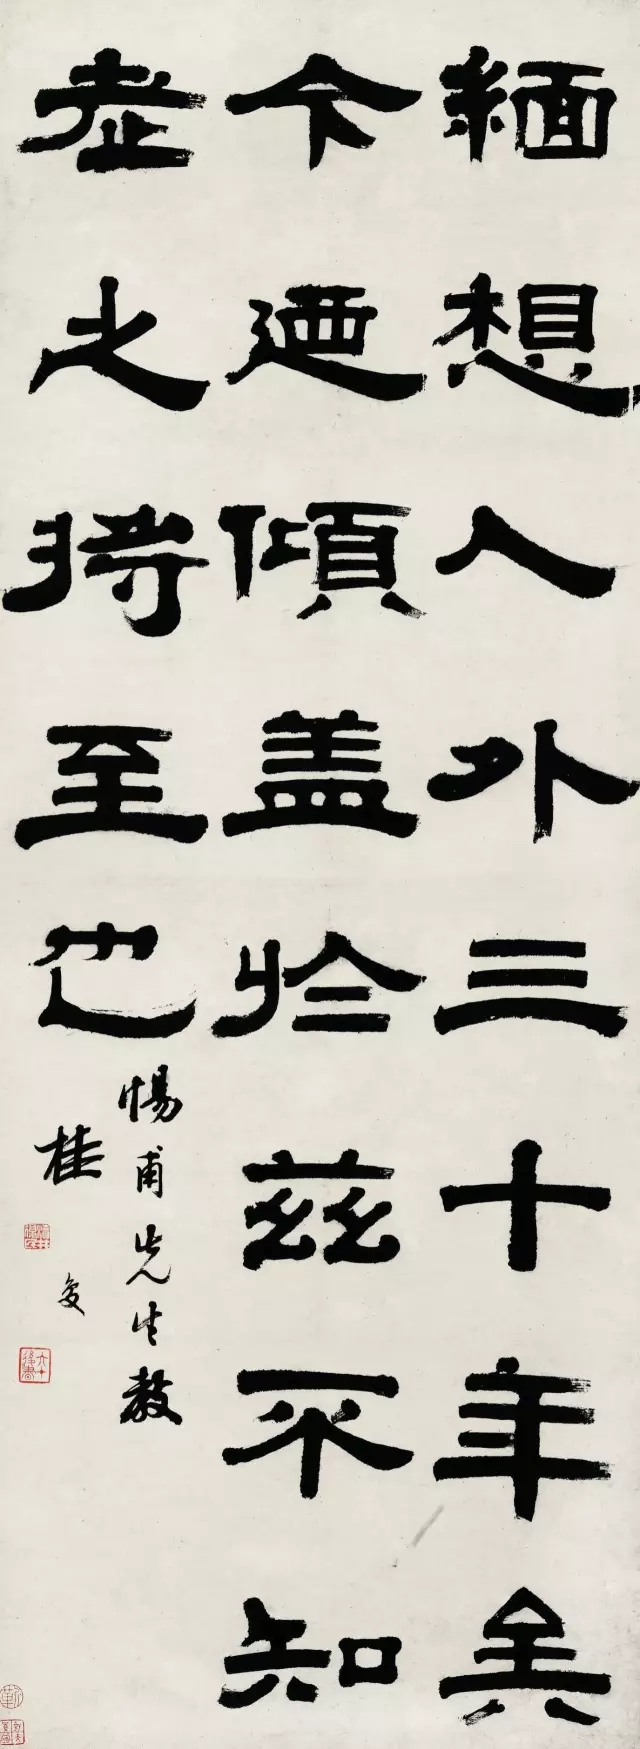 緬想人外三十年矣
今迺傾盖於茲不知
老之将至也
惕甫先生教
桂馥